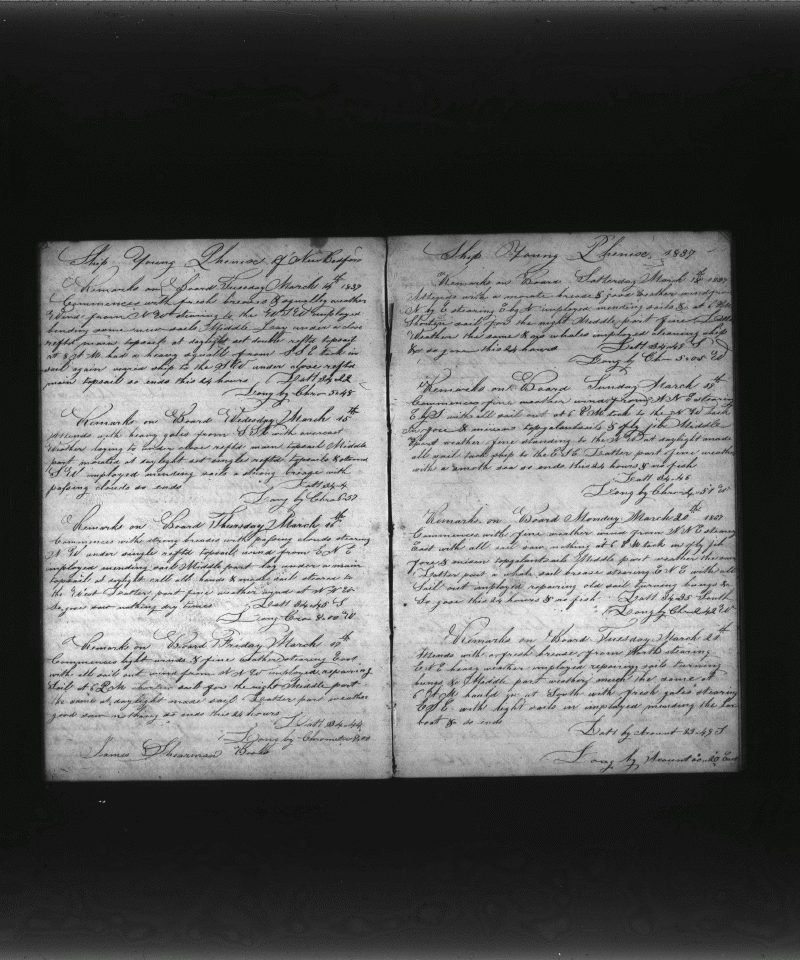 Ship Young Phenix of New Bedford
Remarks on Board Tuesday March 14th 1837
Commences with fresh breeses & squally weather
Wind from N W stearing to the W S W employed
bending some new sails Middle Lay under a close
reft main topsail at daylight set duble reft topsail
at 8 A M had a heavy squall from S S E tuck in
sail again ship to the S W under close reft
main topsail so ends this 24 hours Latt 34-22
Long by Chro 5-45
Remarks on Board Wedesday March 15th
Attends with heavy gales from S S E with overcast
Weather laying to under close reft main topsail Middle
part moderated at daylight set single reft topsails & steared
S W employed mending sails a strong breaze with
passing clouds so ends Latt 34-4
Long by Chro 6-57
Remarks on Board Thursday March 16th
Commences with strong breeses with passing clouds stearing
N W under single reftd topsail wind from E N E
employed mending sail Middle part lay under a main
topsail at daylight call all hands & made sail steared to
the West Latter part fine weather wind at N N E
So goes saw nothing dry times Latt 34-45 S
Long Chro 8-00 W
Remarks on Board Friday March 17th
Commences light winds & fine weather stearing East
with all sail out wind from N N W employed repairing
Sail at 6 P M shorten sail for the night Middle part
the same at daylight made sail Latter part weather
good saw nothing so ends this 24 hours
Latt 34-44
Long by Chronometer 8-00
James Shearman Book
Ship Young Phenix 1837
Remarks on Board Satterday March 18th 1837
Attends with a morate breese & good weather wind from
N by E stearing E by N imployed mending sails & at 6 P M
Shorten sail for the night Middle part fine Latter
Weather the same & no whales imployed cleaning ship
& so goes this 24 hours Latt 34-48 S
Long by Chro 5-05 W
Remarks on Board Sunday March 19th
Commences fine weather wind from N N E stearing
E by S with all sail out at 6 P M tuck to the N W tuck
in gie & mizzen topgalantsails & fly jib Middle
part weather fine standing to the N W at daylight made
all sail tuck ship to the E S E Latter part fine weather
with a smoth sea so ends this 24 hours & no fish
Latt 34-48
Long by Chro 4-51 W
Remarks on Board Monday March 20th 1837
Commences with fine weather wind from N N E stearing
East with all sail saw nothing at 6 P M tuck in fly jib
fore & mizen topgalantsails Middle part weather the same
Latter part a whole sail breese stearing E N E with all
Sail out imployed repairing old sail turning bungs &
So goes this 24 hours & no fish Latt 34-25 South
Long by Chro 2-42 W
Remarks on Board Tuesday March 21th
Attends with a fresh breese from North stearing
E N E heavy weather imployed repairing sails turning
bungs & Middle part weather much the same at
6 A M hauld in at South with fresh gales stearing
E S E with light sails in imployed mending the Lar
boat & so ends
Latt by Acount 33-49 S
Long by Acount 00-20 East